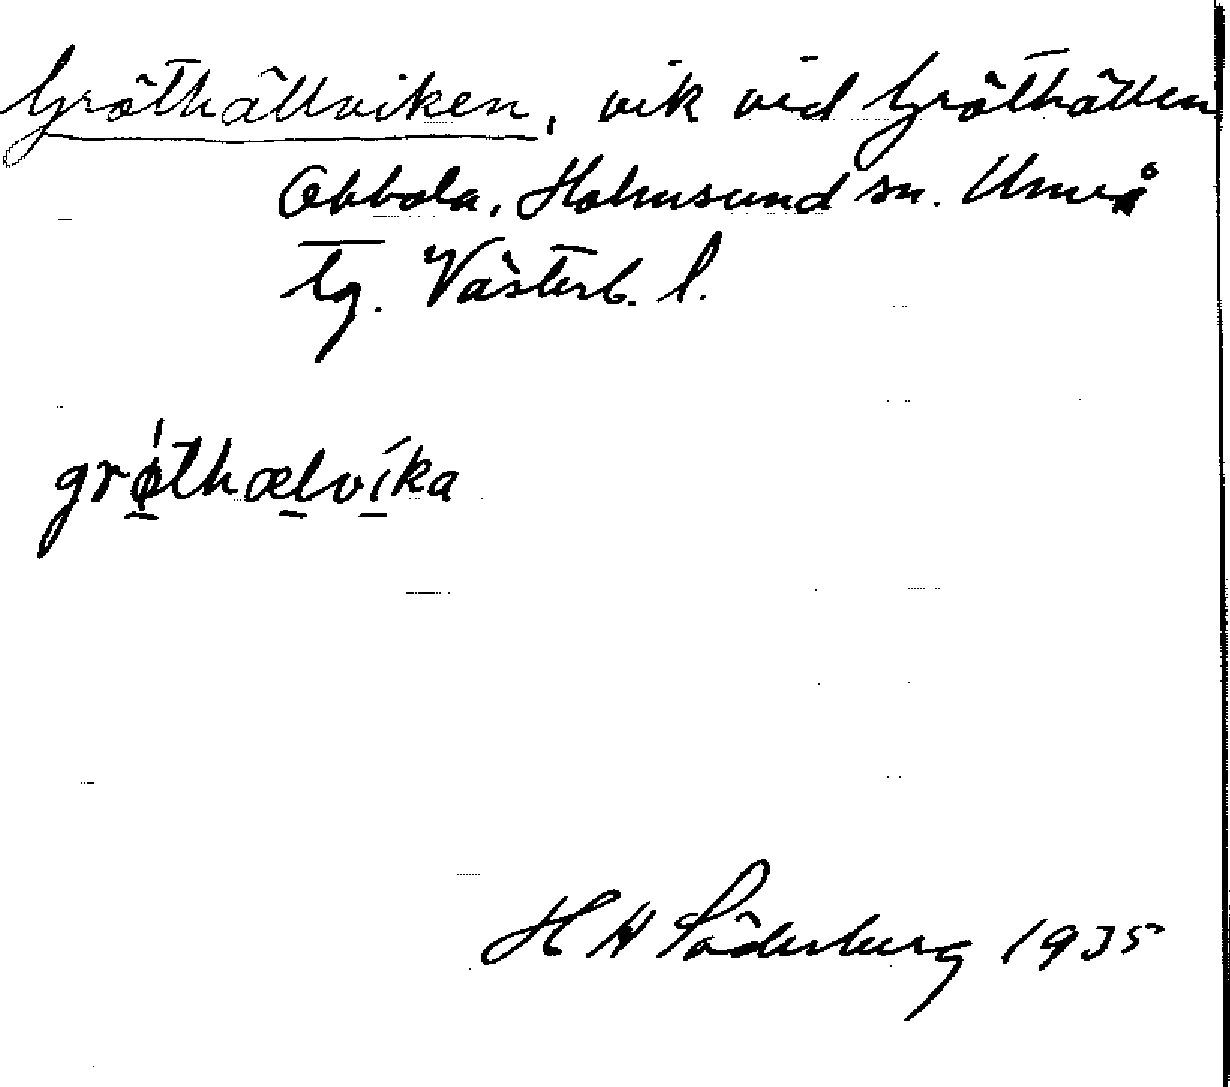 Gröthällviken, vik vid Gröthällen
Obbola, Holmsund sn. Umeå
tg. Västerb. l.
grøthælvíka
H N Söderberg 1935